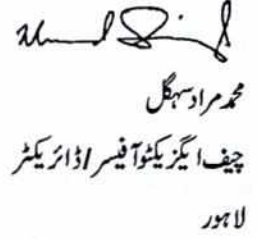 محمد مراد سہگل
چیف ایگزیکٹو آفیسر / ڈائریکٹر
لاہور